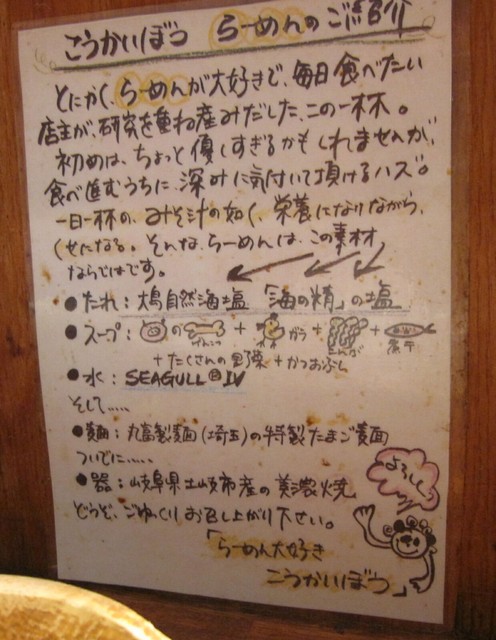 こうかいぼう らーめんのご紹介
とにかく、らーめんが大好きで、毎日食べたい
店主が、研究を重ね産みだした、この一杯。
初めは、ちょっと優しすぎるかもしれませんが、
食べ進むうちに、深みに気付いて頂けるハズ。
一日一杯の、みそ汁の如く、栄養になりながら、
くせになる。そんな、らーめんは、この素材
ならではです。
●たれ：大島自然海塩「海の精」の塩
●スープ：の + ガラ + +
げんこつ こんぶ 煮干
+たくさんの野菜+かつおぶし
●水：SEAGULL®IV
そして.....
●麺：丸富製麺(埼玉)の特製たまご麺
ついでに.....
●器：岐阜県土岐市産の美濃焼
どうぞ、ごゆっくりお召し上がり下さい。
「らーめん大好き
こうかいぼう」
よろしく